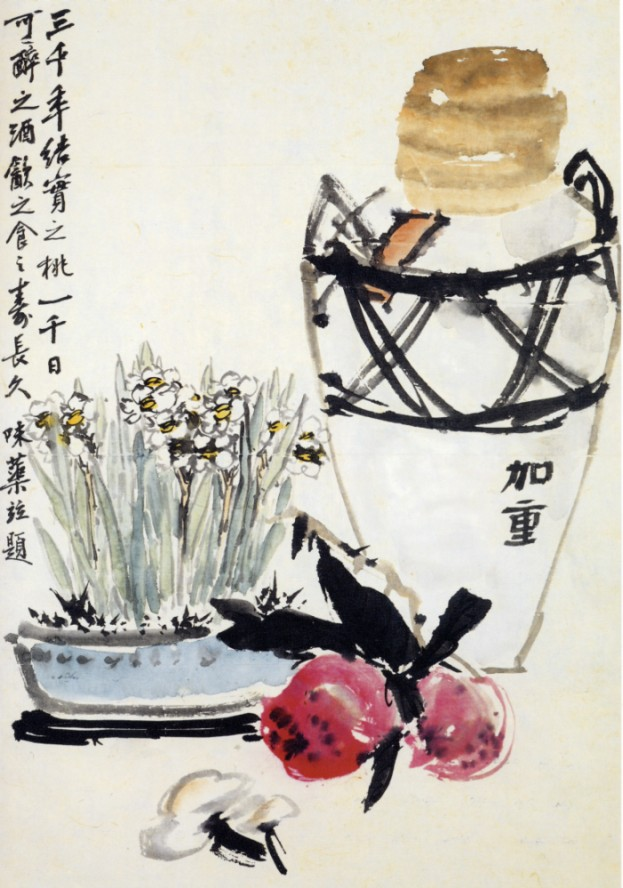 三千年結實之桃一千日
可醉之酒飲之食之壽長久 味蕖竝題
加重